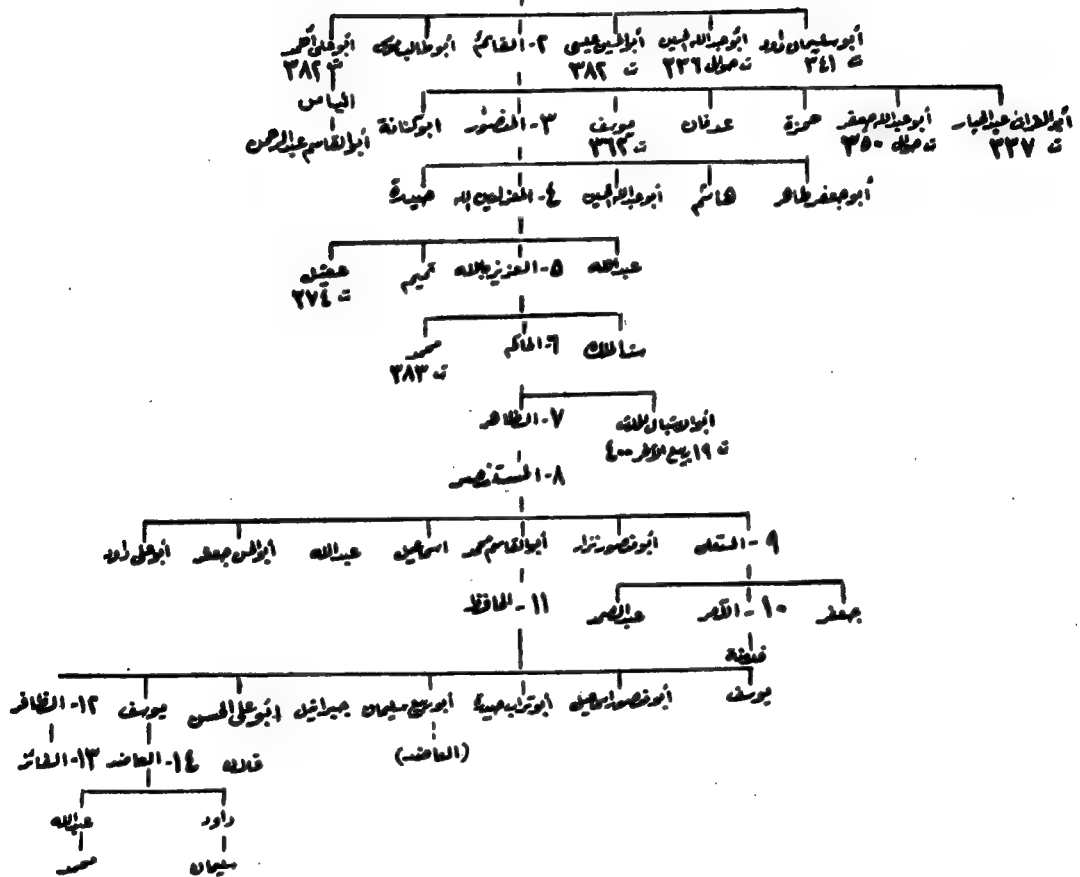 أبو سليمان داود أبو عبد الله الحسين أبو الحسين عيسى ٢- القائم أبو طالب موسى أبو علي أحمد
ت ٣٤١ ت حوالى ٣٣٦ ت ٣٨٢ ت ٣٨٢
الياس
أبو القاسم عبد الرحمن
عبد الجبار أبو عبد الله جعفر حمزة عدنان يوسف ٣- المنصور ابو كنانة
ت ٣٣٧ ت حوالى ٣٥٠ ت ٣٦٢
أبو جعفر طاهر هاشم أبو عبد الله الحسين ٤- المعز لدين الله حيدرة
عبد الله ٥- العزيز بالله تميم عقيل
ت ٣٧٤
ست الملك ٦- الحاكم محمد
ت ٣٨٣
أبو الاشبال الحارث ٧- الظاهر
ت ١٩ ربيع الآخر ٤٠٠
٨- المستنصر
٩- المستعلى أبو منصور نزار أبو القاسم محمد اسماعيل عبد الله أبو الحسن جعفر أبو علي داود
جعفر ١٠- الآمر عبد الصمد ١١- الحافظ
يوسف أبو منصور اسماعيل أبو تراب حيدرة أبو ربيع سليمان جبرائيل أبو علي الحسن يوسف ١٢- الظافر
(العاضد) ١٤- العاضد ١٣- الفائز
داود عبد الله
سليمان محمد